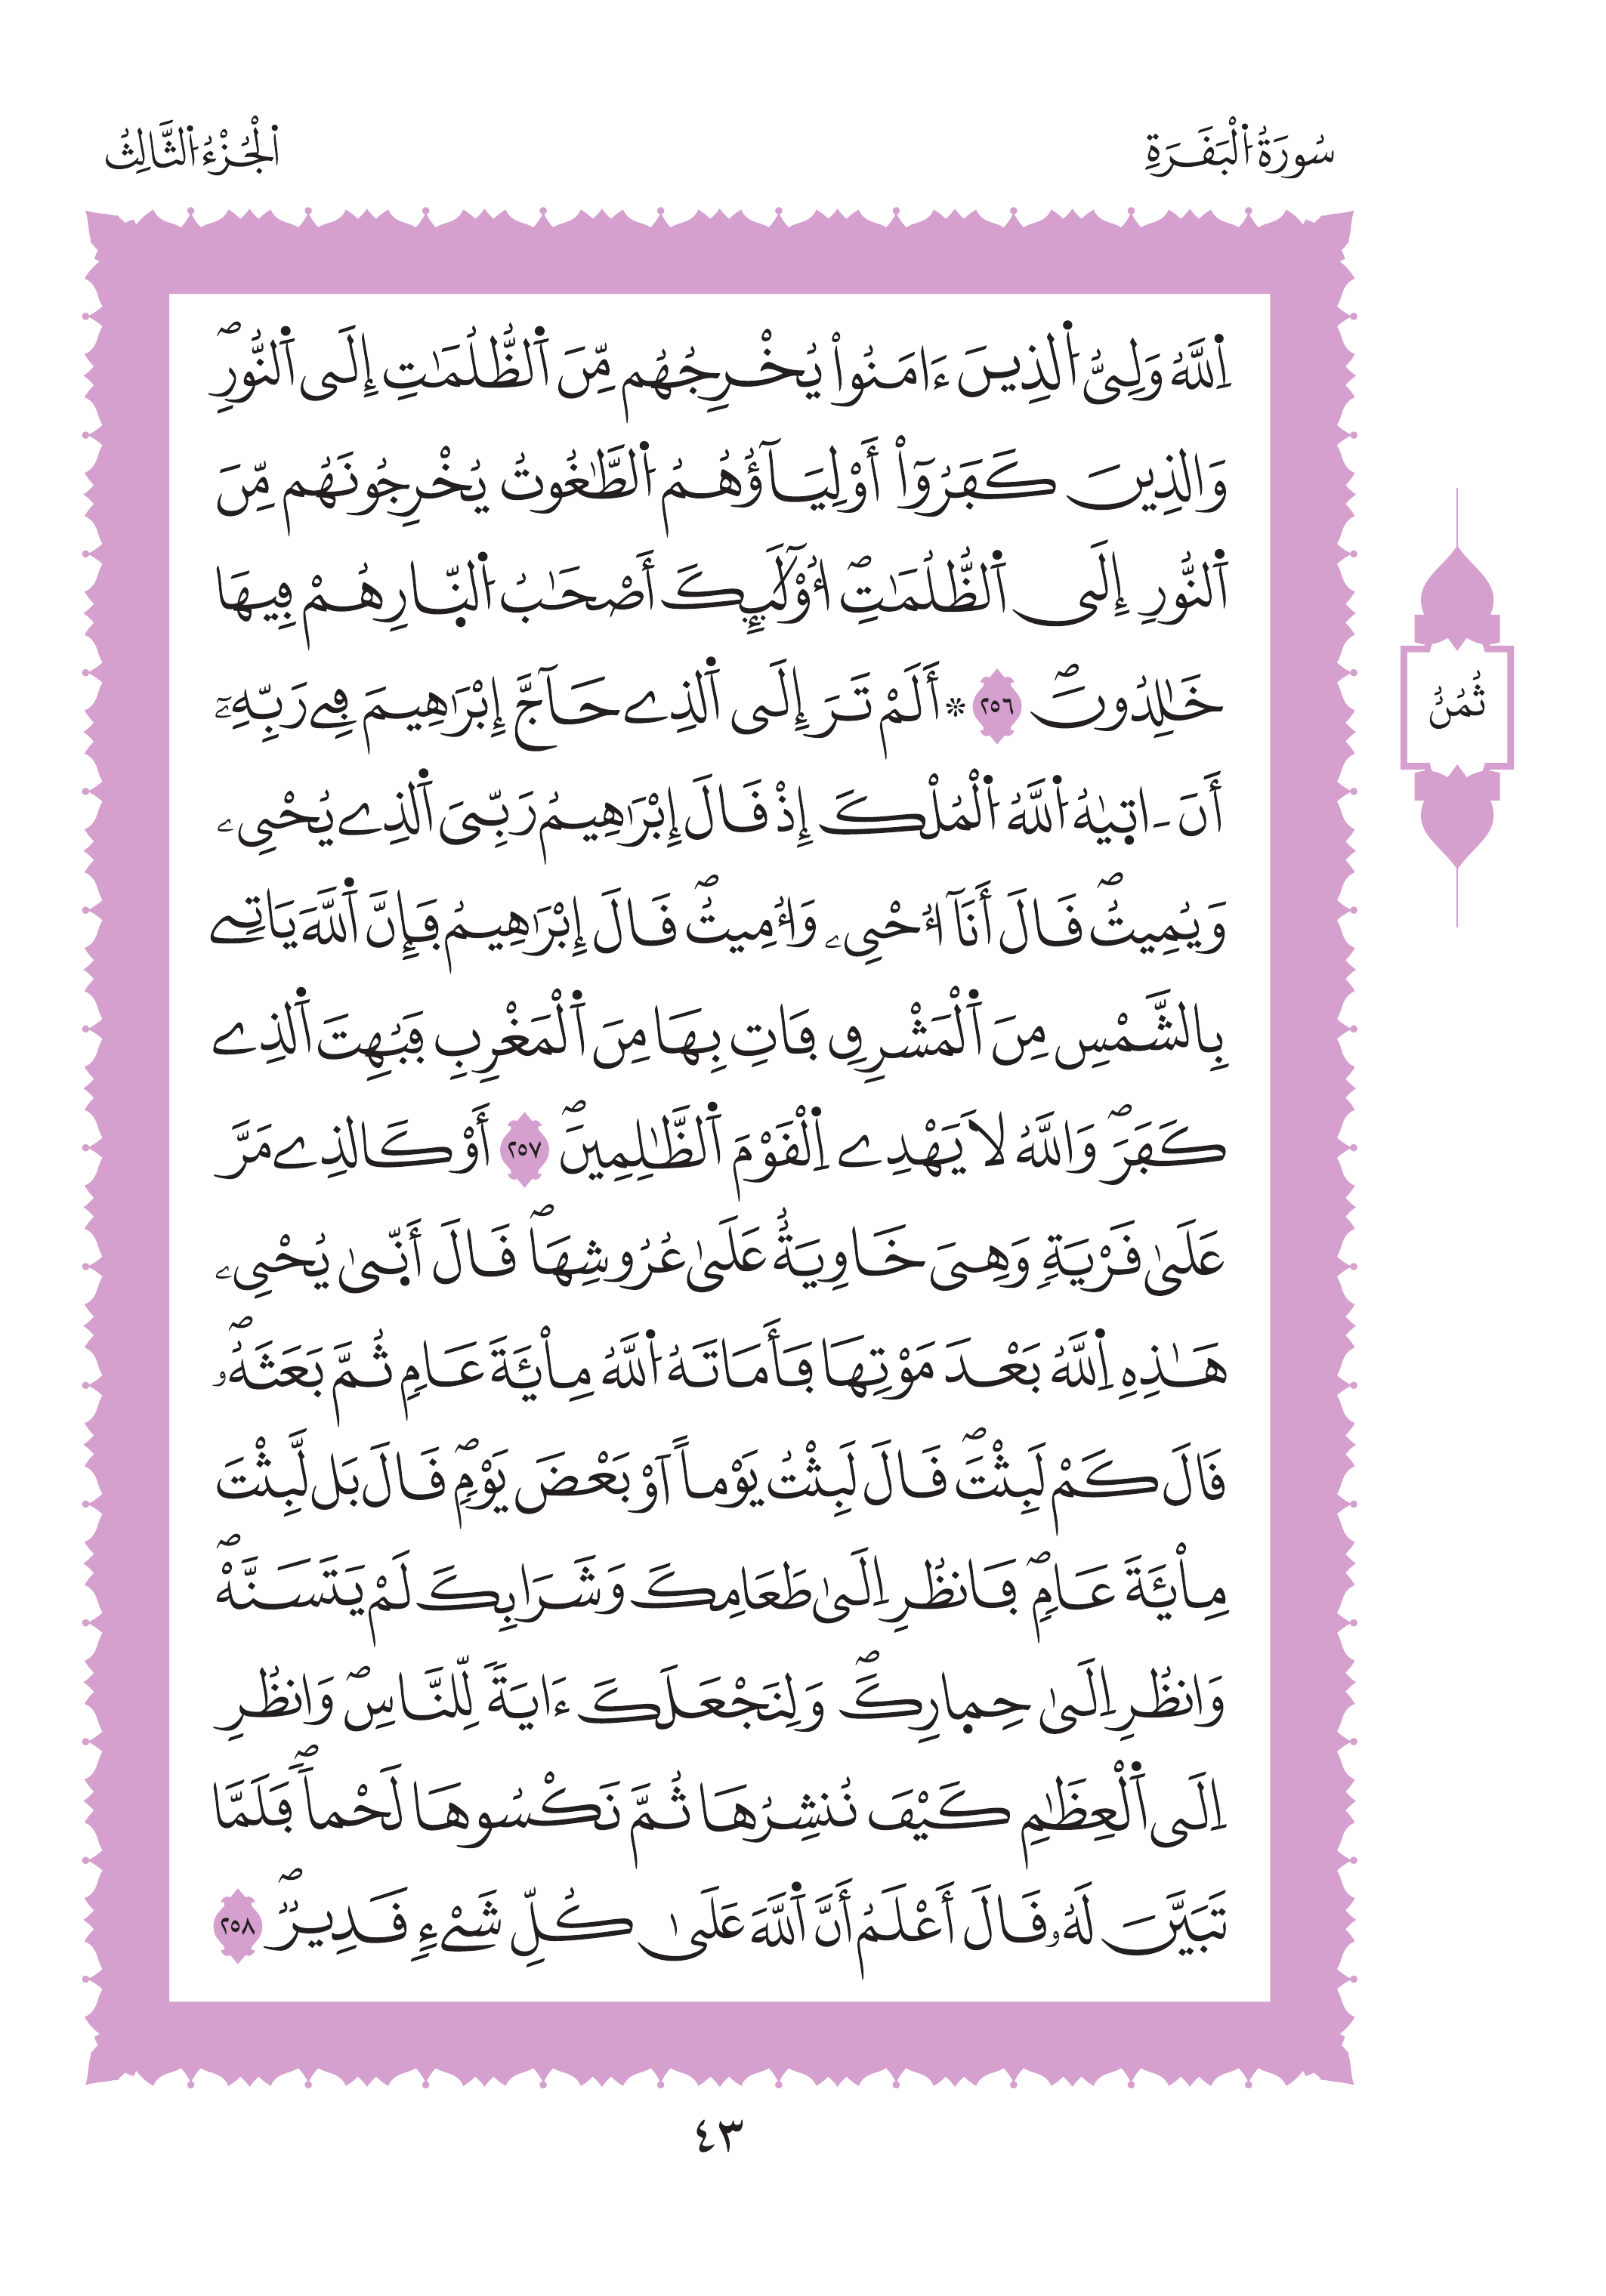 سُورَةُ اُ۬لْبَقَرَةِ
اَ۬لْجُزْءُ اُ۬لثَّالِثُ
اِ۬للَّهُ وَلِيُّ اُ۬لذِينَ ءَامَنُواْ يُخْرِجُهُم مِّنَ اَ۬لظُّلُمَٰتِ إِلَى اَ۬لنُّورِۖ
وَالذِينَ كَفَرُوٓاْ أَوْلِيَآؤُهُمُ اُ۬لطَّٰغُوتُ يُخْرِجُونَهُم مِّنَ
اَ۬لنُّورِ إِلَى اَ۬لظُّلُمَٰتِۖ أُوْلَٰٓئِكَ أَصْحَٰبُ اُ۬لنّ۪ارِ هُمْ فِيهَا
خَٰلِدُونَۖ ٢٥٦ * أَلَمْ تَرَ إِلَى اَ۬لذِے حَآجَّ إِبْرَٰهِيمَ فِے رَبِّهِۦٓ
أَنَ ـ ات۪يٰهُ اُ۬للَّهُ اُ۬لْمُلْكَ إِذْ قَالَ إِبْرَٰهِيمُ رَبِّيَ اَ۬لذِے يُحْيِۦ
وَيُمِيتُۖ قَالَ أَنَآ أُحْيِۦ وَأُمِيتُۖ قَالَ إِبْرَٰهِيمُ فَإِنَّ اَ۬للَّهَ يَاتِے
بِالشَّمْسِ مِنَ اَ۬لْمَشْرِقِ فَاتِ بِهَا مِنَ اَ۬لْمَغْرِبِ فَبُهِتَ اَ۬لذِے
كَفَرَۖ وَاللَّهُ لَا يَهْدِے اِ۬لْقَوْمَ اَ۬لظَّٰلِمِينَۖ ٢٥٧ أَوْ كَالذِے مَرَّ
عَلَىٰ قَرْيَةٖ وَهِيَ خَاوِيَةٌ عَلَىٰ عُرُوشِهَاۖ قَالَ أَنّ۪ىٰ يُحْيِۦ
هَٰذِهِ اِ۬للَّهُ بَعْدَ مَوْتِهَا فَأَمَاتَهُ اُ۬للَّهُ مِاْئَةَ عَامٖ ثُمَّ بَعَثَهُۥۖ
قَالَ كَمْ لَبِثْتَۖ قَالَ لَبِثْتُ يَوْماً اَوْ بَعْضَ يَوْمٖۖ قَالَ بَل لَّبِثْتَ
مِاْئَةَ عَامٖۖ فَانظُرِ اِلَىٰ طَعَامِكَ وَشَرَابِكَ لَمْ يَتَسَنَّهْۖ
وَانظُرِ اِلَىٰ حِم۪ارِكَۖ وَلِنَجْعَلَكَ ءَايَةٗ لِّلنَّاسِۖ وَانظُرِ
اِلَى اَ۬لْعِظَٰمِ كَيْفَ نُنشِرُهَا ثُمَّ نَكْسُوهَا لَحْماٗۖ فَلَمَّا
تَبَيَّنَ لَهُۥ قَالَ أَعْلَمُ أَنَّ اَ۬للَّهَ عَلَىٰ كُلِّ شَےْءٖ قَدِيرٞۖ ٢٥٨
ثُمُنُ
٤٣